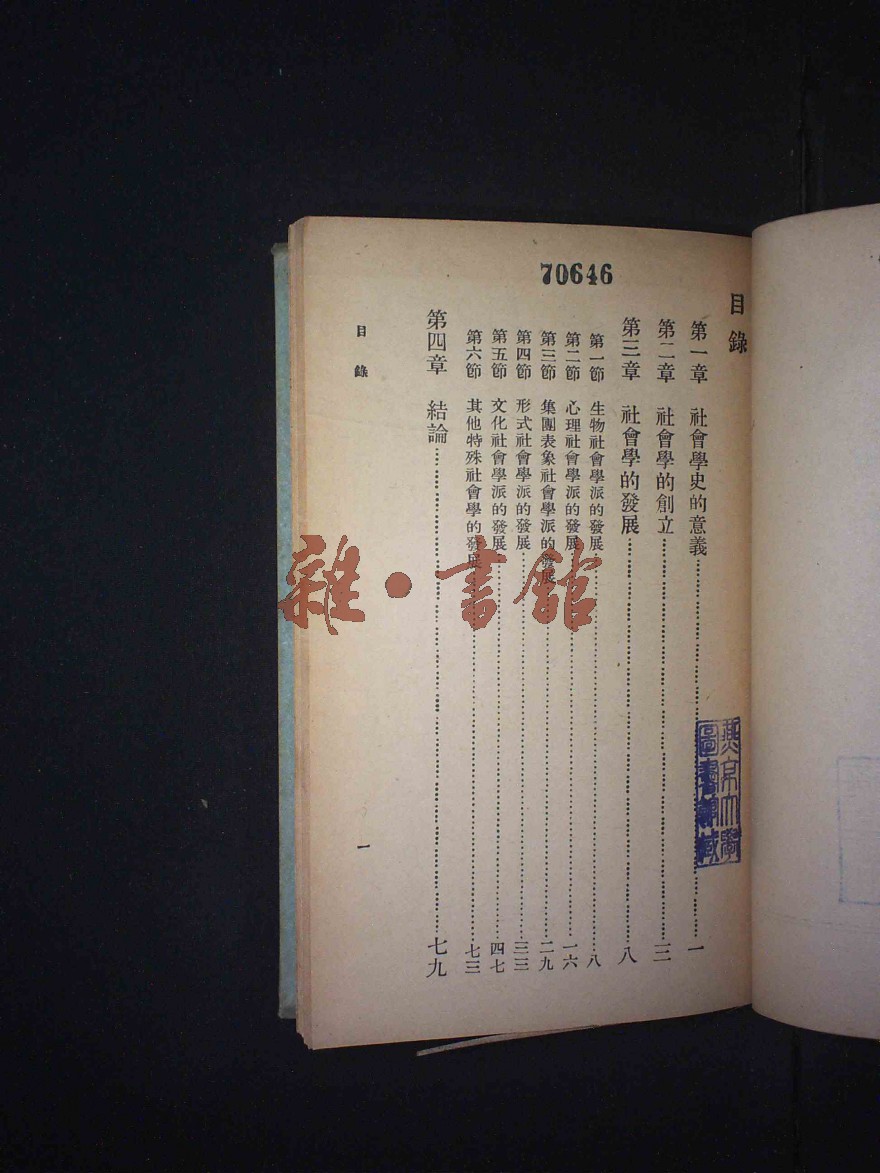 70646
目錄
第一章 社會學史的意義……一
第二章 社會學的創立……三
第三章 社會學的發展……八
第一節 生物社會學派的發展……八
第二節 心理社會學派的發展……一六
第三節 集團表象社會學派的發展……二九
第四節 形式社會學派的發展……三三
第五節 文化社會學派的發展……四七
第六節 其他特殊社會學的發展……七三
第四章 結論……七九
目錄
一
燕京大學圖書館藏
雜·書館